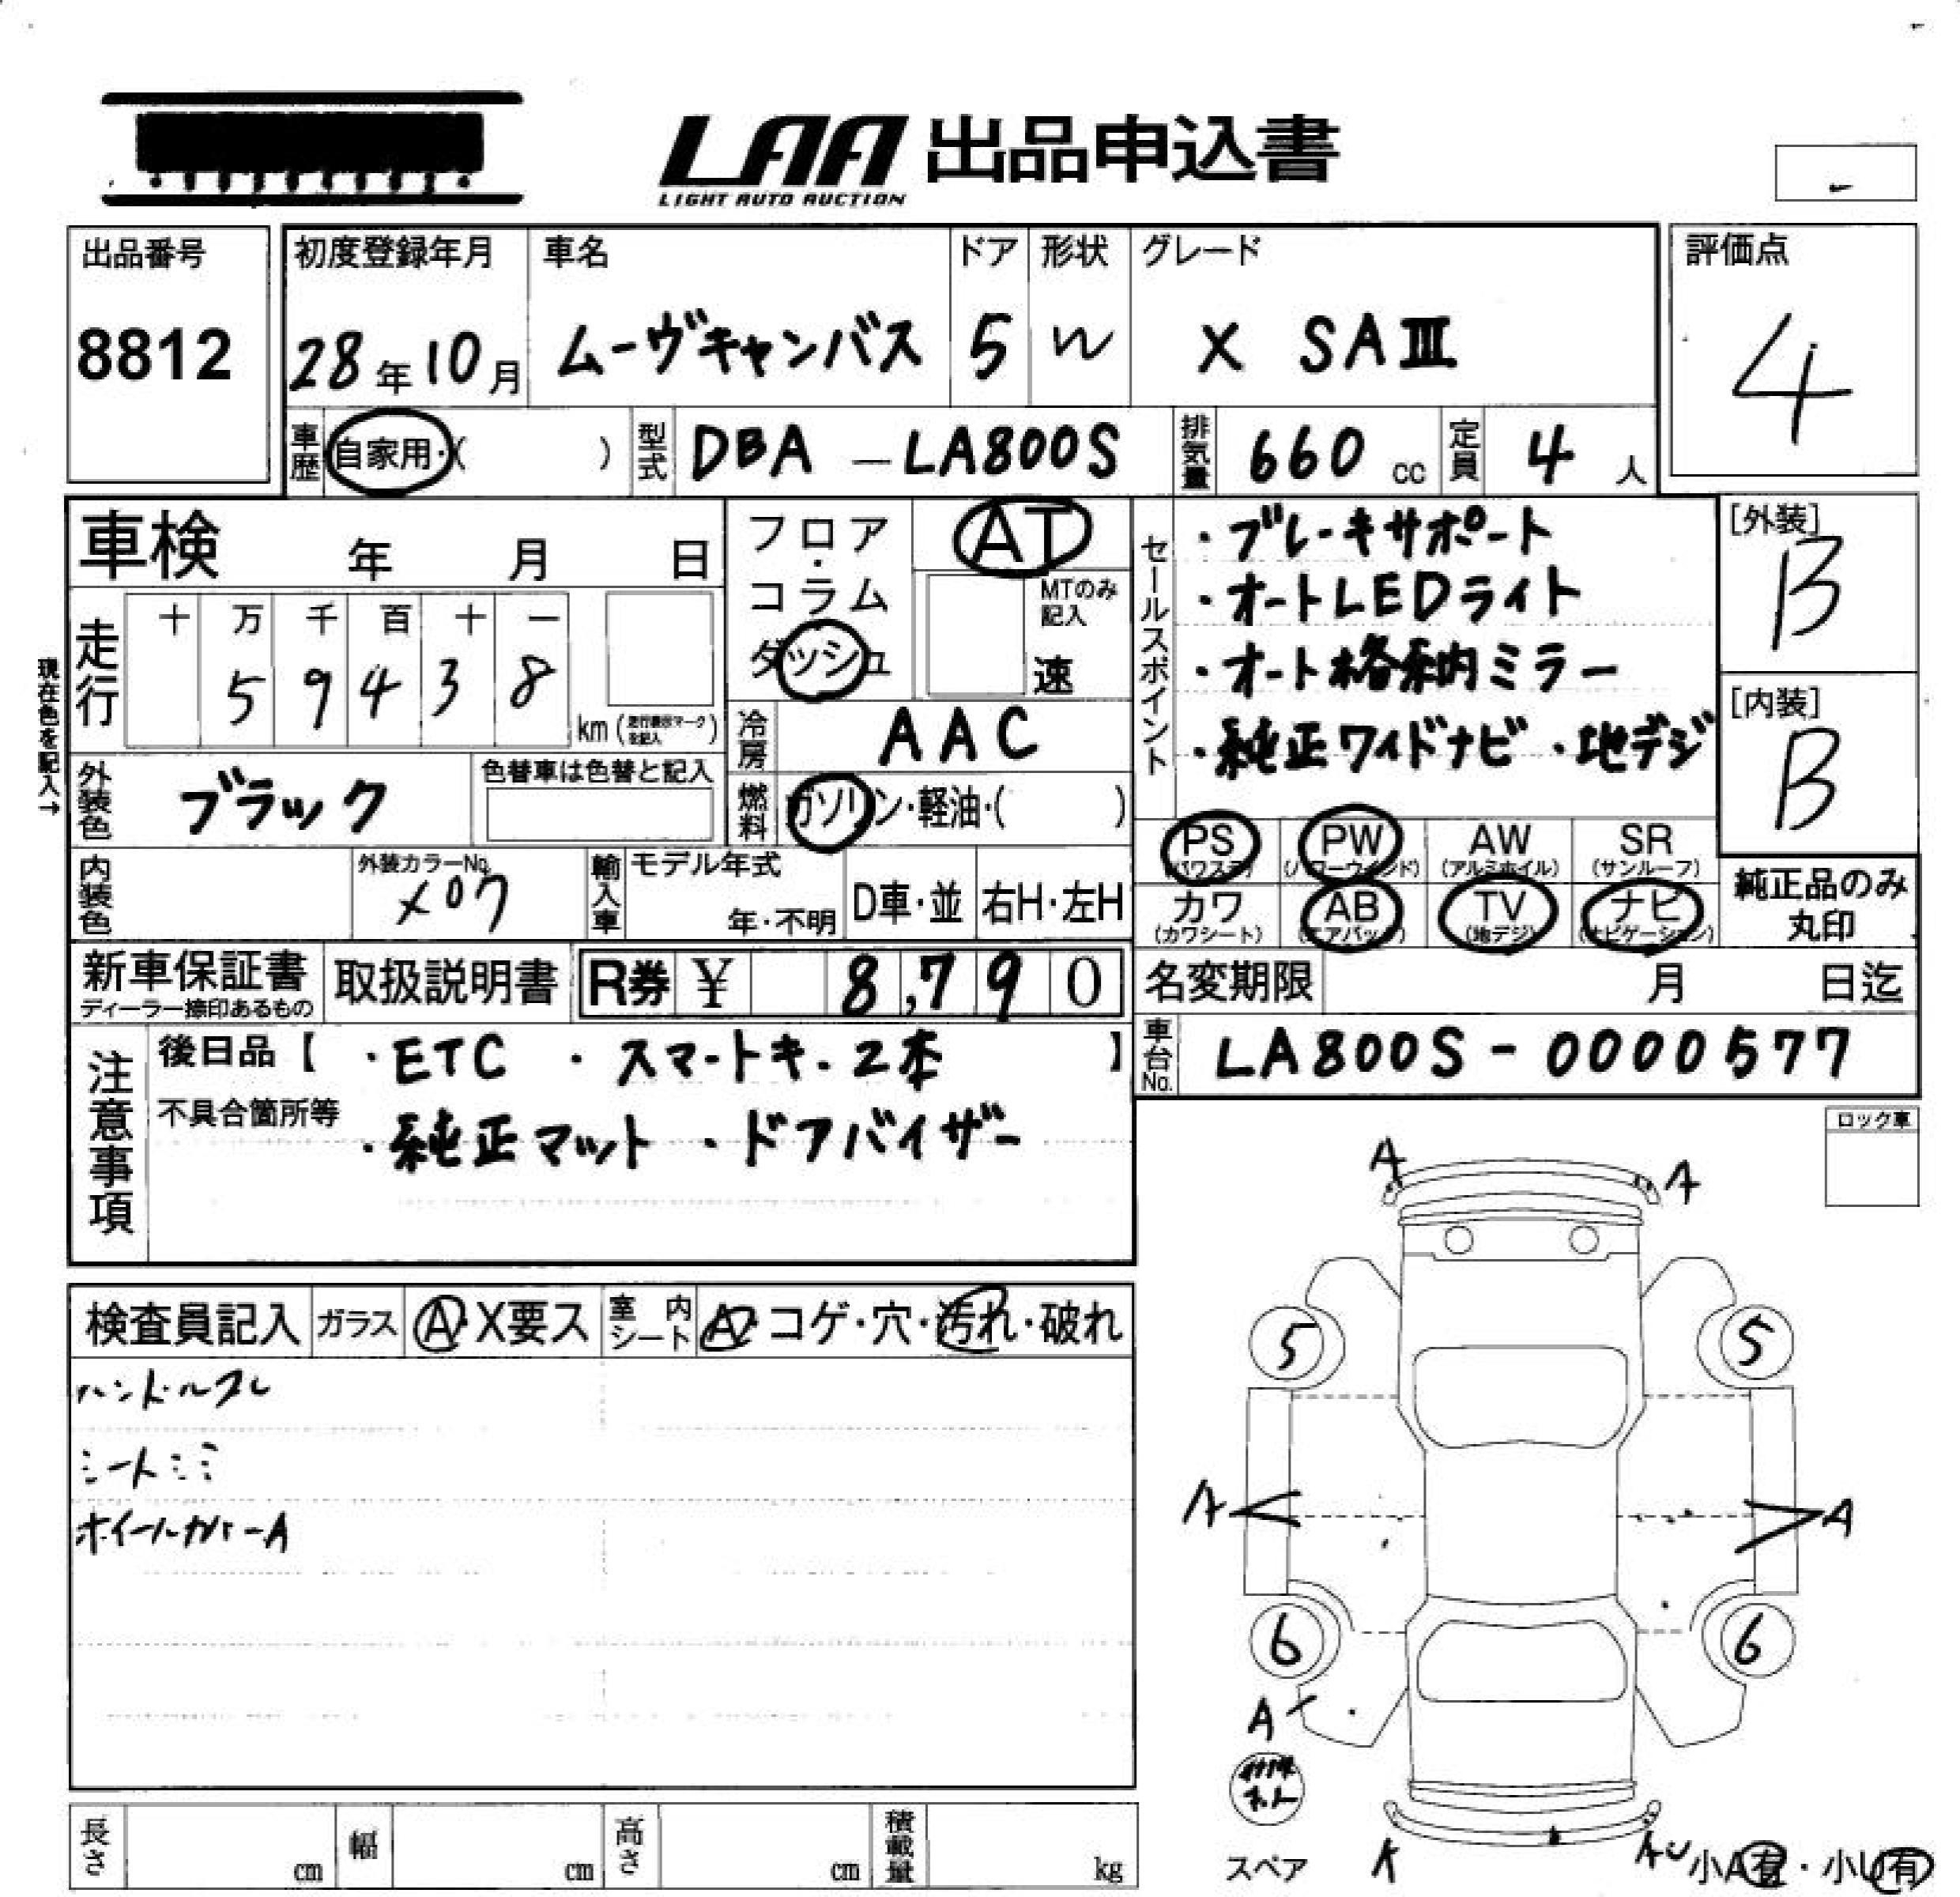 LAA 出品申込書
LIGHT AUTO AUCTION
出品番号
8812
初度登録年月
28年10月
車名
ムーヴキャンバス
ドア
5
形状
W
グレード
X SAⅢ
評価点
4
車歴 自家用・( )
型式 DBA-LA800S
排気量 660 cc
定員 4 人
車検 年 月 日
フロア・コラム ダッシュ
AT
MTのみ記入
速
現在色を記入→
走行
十 万 千 百 十 一
5 9 4 3 8
km (走行表示マークを記入)
冷房 AAC
燃料 ガソリン・軽油・( )
外装色 ブラック
色替車は色替と記入
内装色
外装カラーNo.
X07
輸入車 モデル年式
年・不明
D車・並
右H・左H
セールスポイント
・ブレーキサポート
・オートLEDライト
・オート格納ミラー
・純正ワイドナビ ・地デジ
[外装]
B
[内装]
B
PS (パワステ)
PW (パワーウインド)
AW (アルミホイル)
SR (サンルーフ)
カワ (カワシート)
AB (エアバッグ)
TV (地デジ)
ナビ (ナビゲーション)
純正品のみ
丸印
新車保証書
ディーラー捺印あるもの
取扱説明書
R券 ¥ 8,790
名変期限 月 日迄
注意事項
後日品【 ・ETC ・スマートキー2本 】
不具合箇所等 ・純正マット ・ドアバイザー
車台No. LA800S-0000577
ロック車
検査員記入
ガラス A・X要ス
室内シート A・コゲ・穴・汚れ・破れ
ハンドルスレ
シートシミ
ホイールカバーA
A
A
5
5
A
A
6
6
A
スペア
A
AU
小A有・小U有
長さ cm
幅 cm
高さ cm
積載量 kg